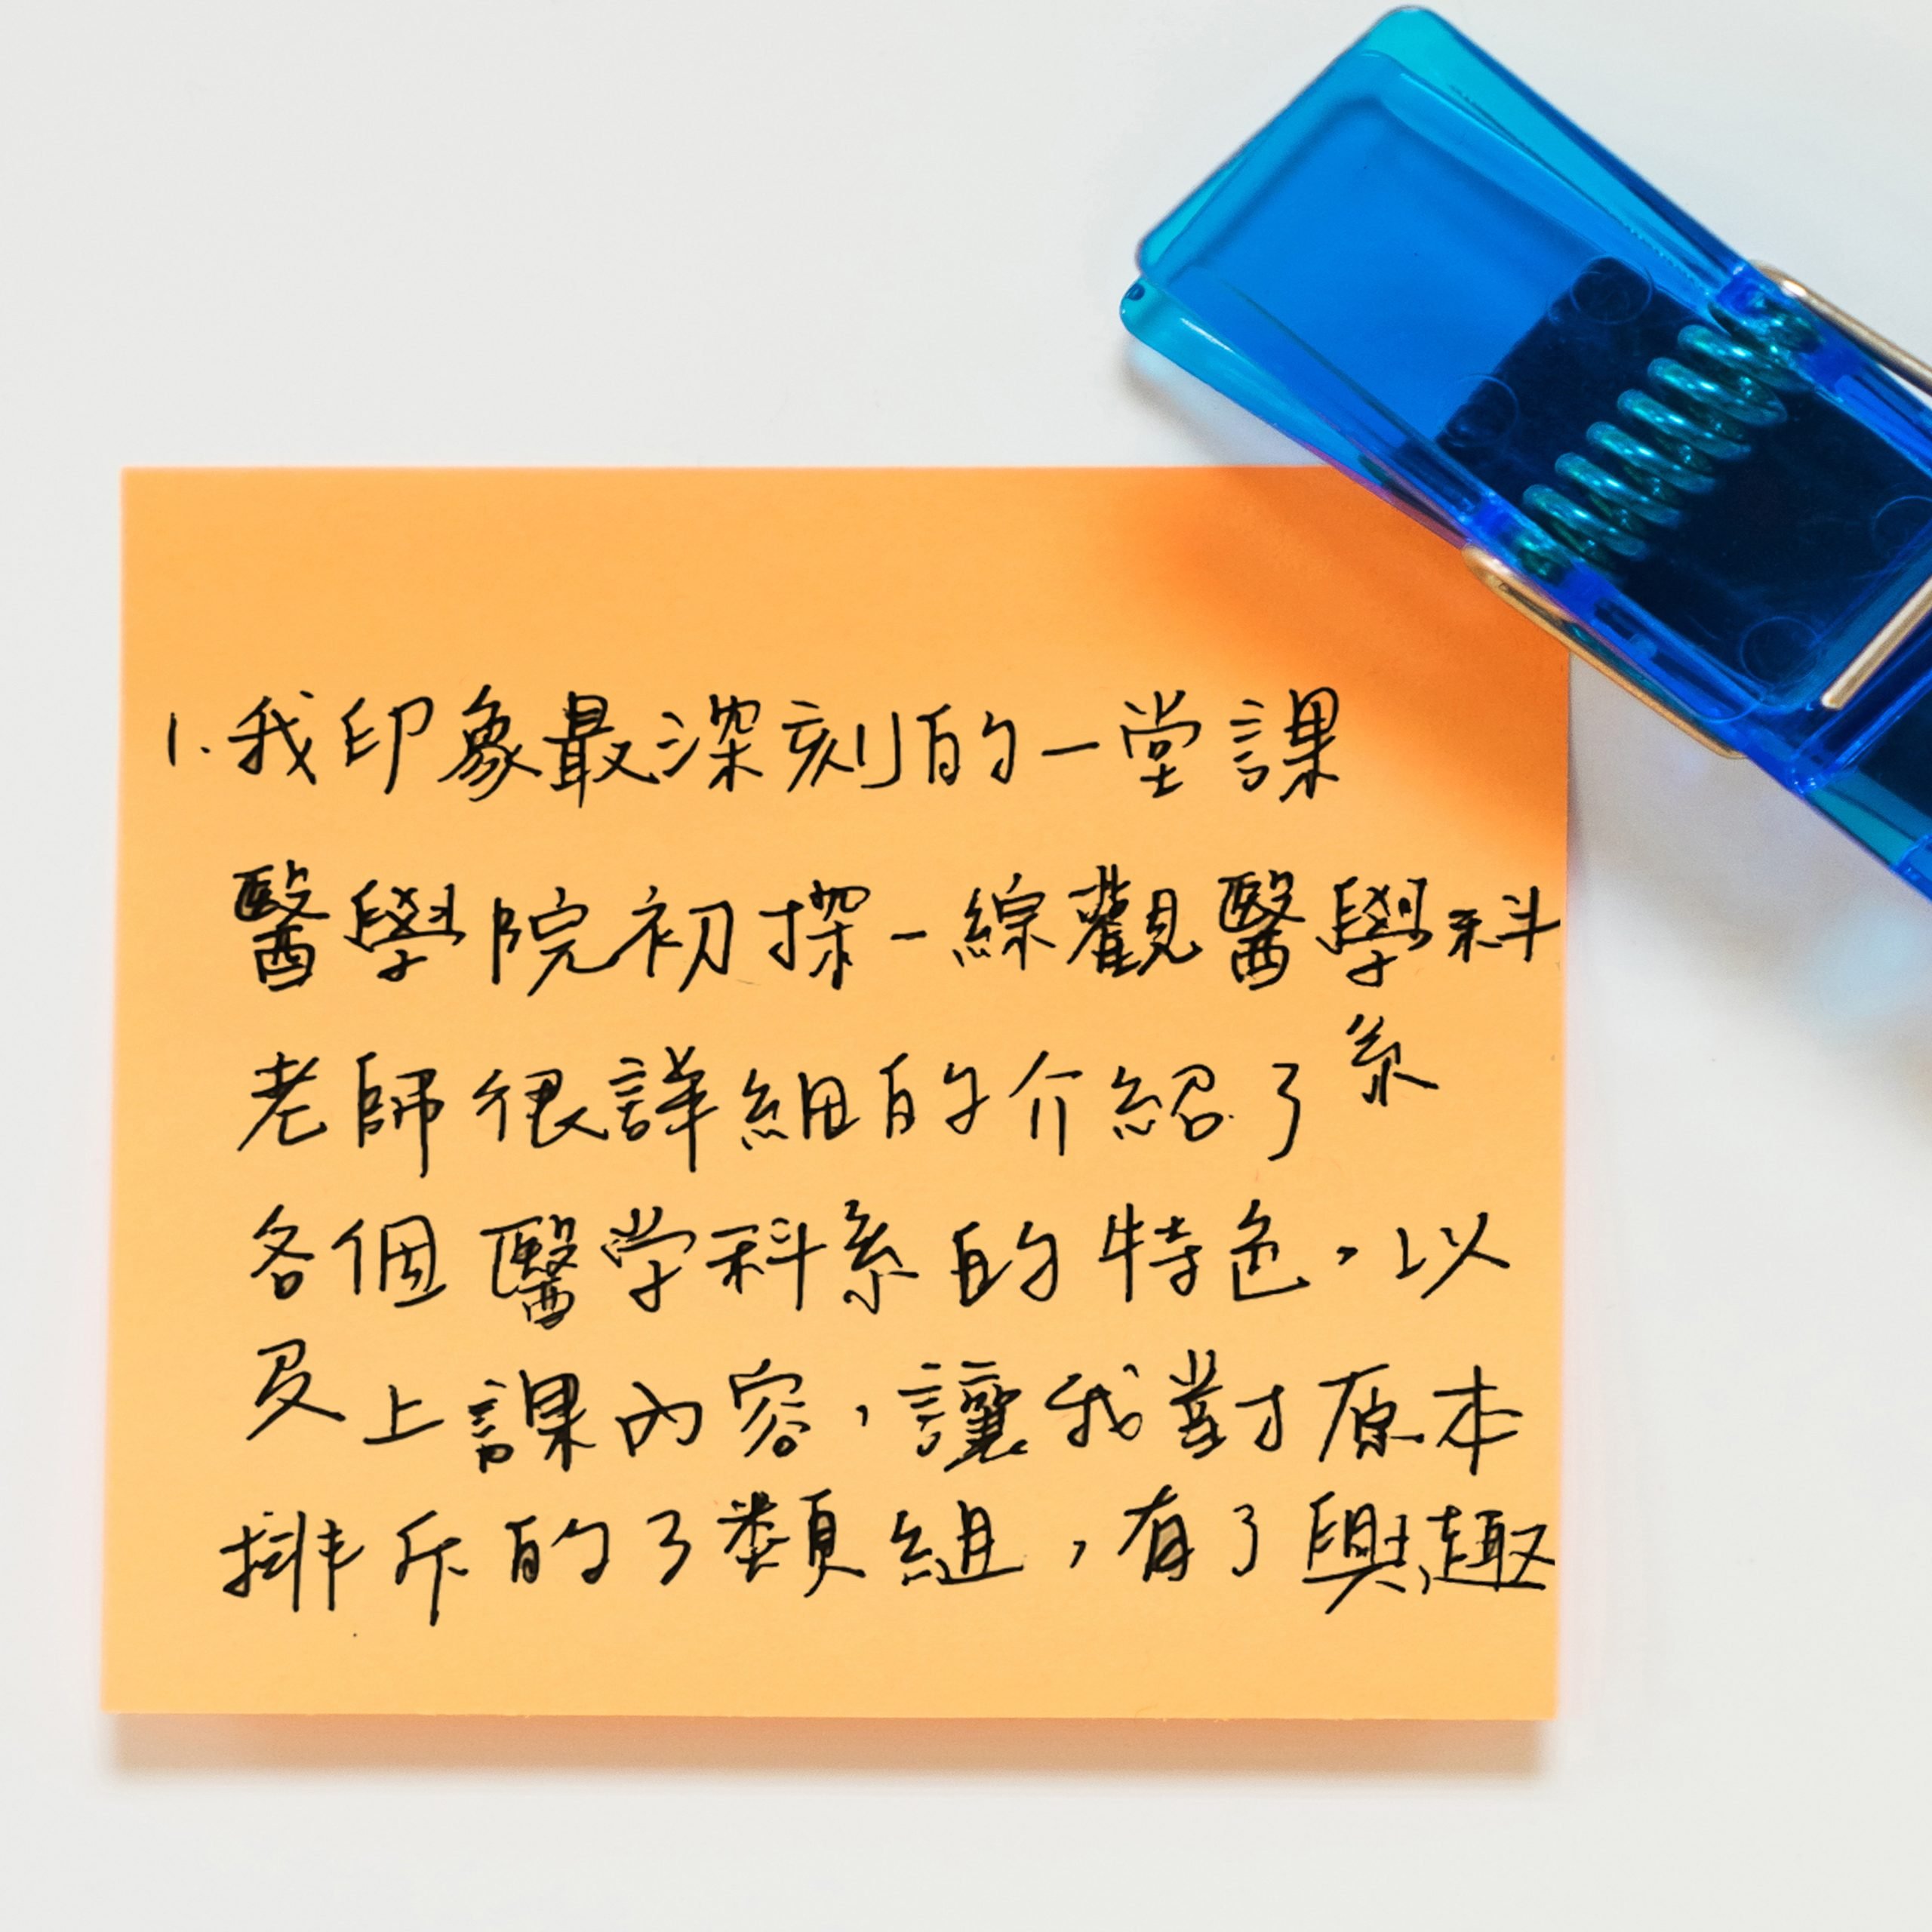 1.我印象最深刻的一堂課
醫學院初探-綜觀醫學科
系
老師很詳細的介紹了
各個醫学科系的特色,以
及上課內容,讓我對原本
排斥的3類組,有了興趣